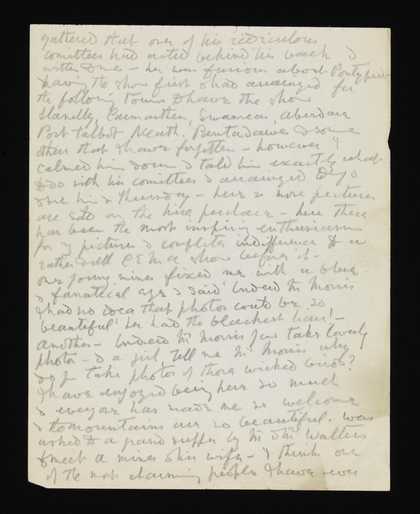 gathered that one of his ridiculous
committees had acted behind his back &
written to me - he was furious about Pontypridd
having the show first & had arranged for
the following towns to have the show
Llanelly, Carmarthen, Swansea, Aberdare
Port Talbot Neath, Pontardawe & some
others that I have forgotten - however I
calmed him down & told him exactly what
to do with his committees & arranged to go
& see him on Thursday - here no more pictures
are sold on the hire purchase - here there
has been the most inspiring enthusiasm
for my pictures & complete indifference to a
rather dull C.E.M.A show before it -
one young miner fixed me with a blue
& fanatical eye & said 'Indeed Mr Morris
I had no idea that photos could be so
beautiful' he had the blackest hair! -
another - 'Indeed Mr Morris you take lovely
photos - & a girl tell me Mr Morris why
do you take photos of those wicked birds?
I have enjoyed being here so much
& everyone has made me so welcome
& the mountains are so beautiful. was
asked to a grand supper by Mr & Mrs Walters
to meet a miner & his wife - I think one
of the most charming people I have ever